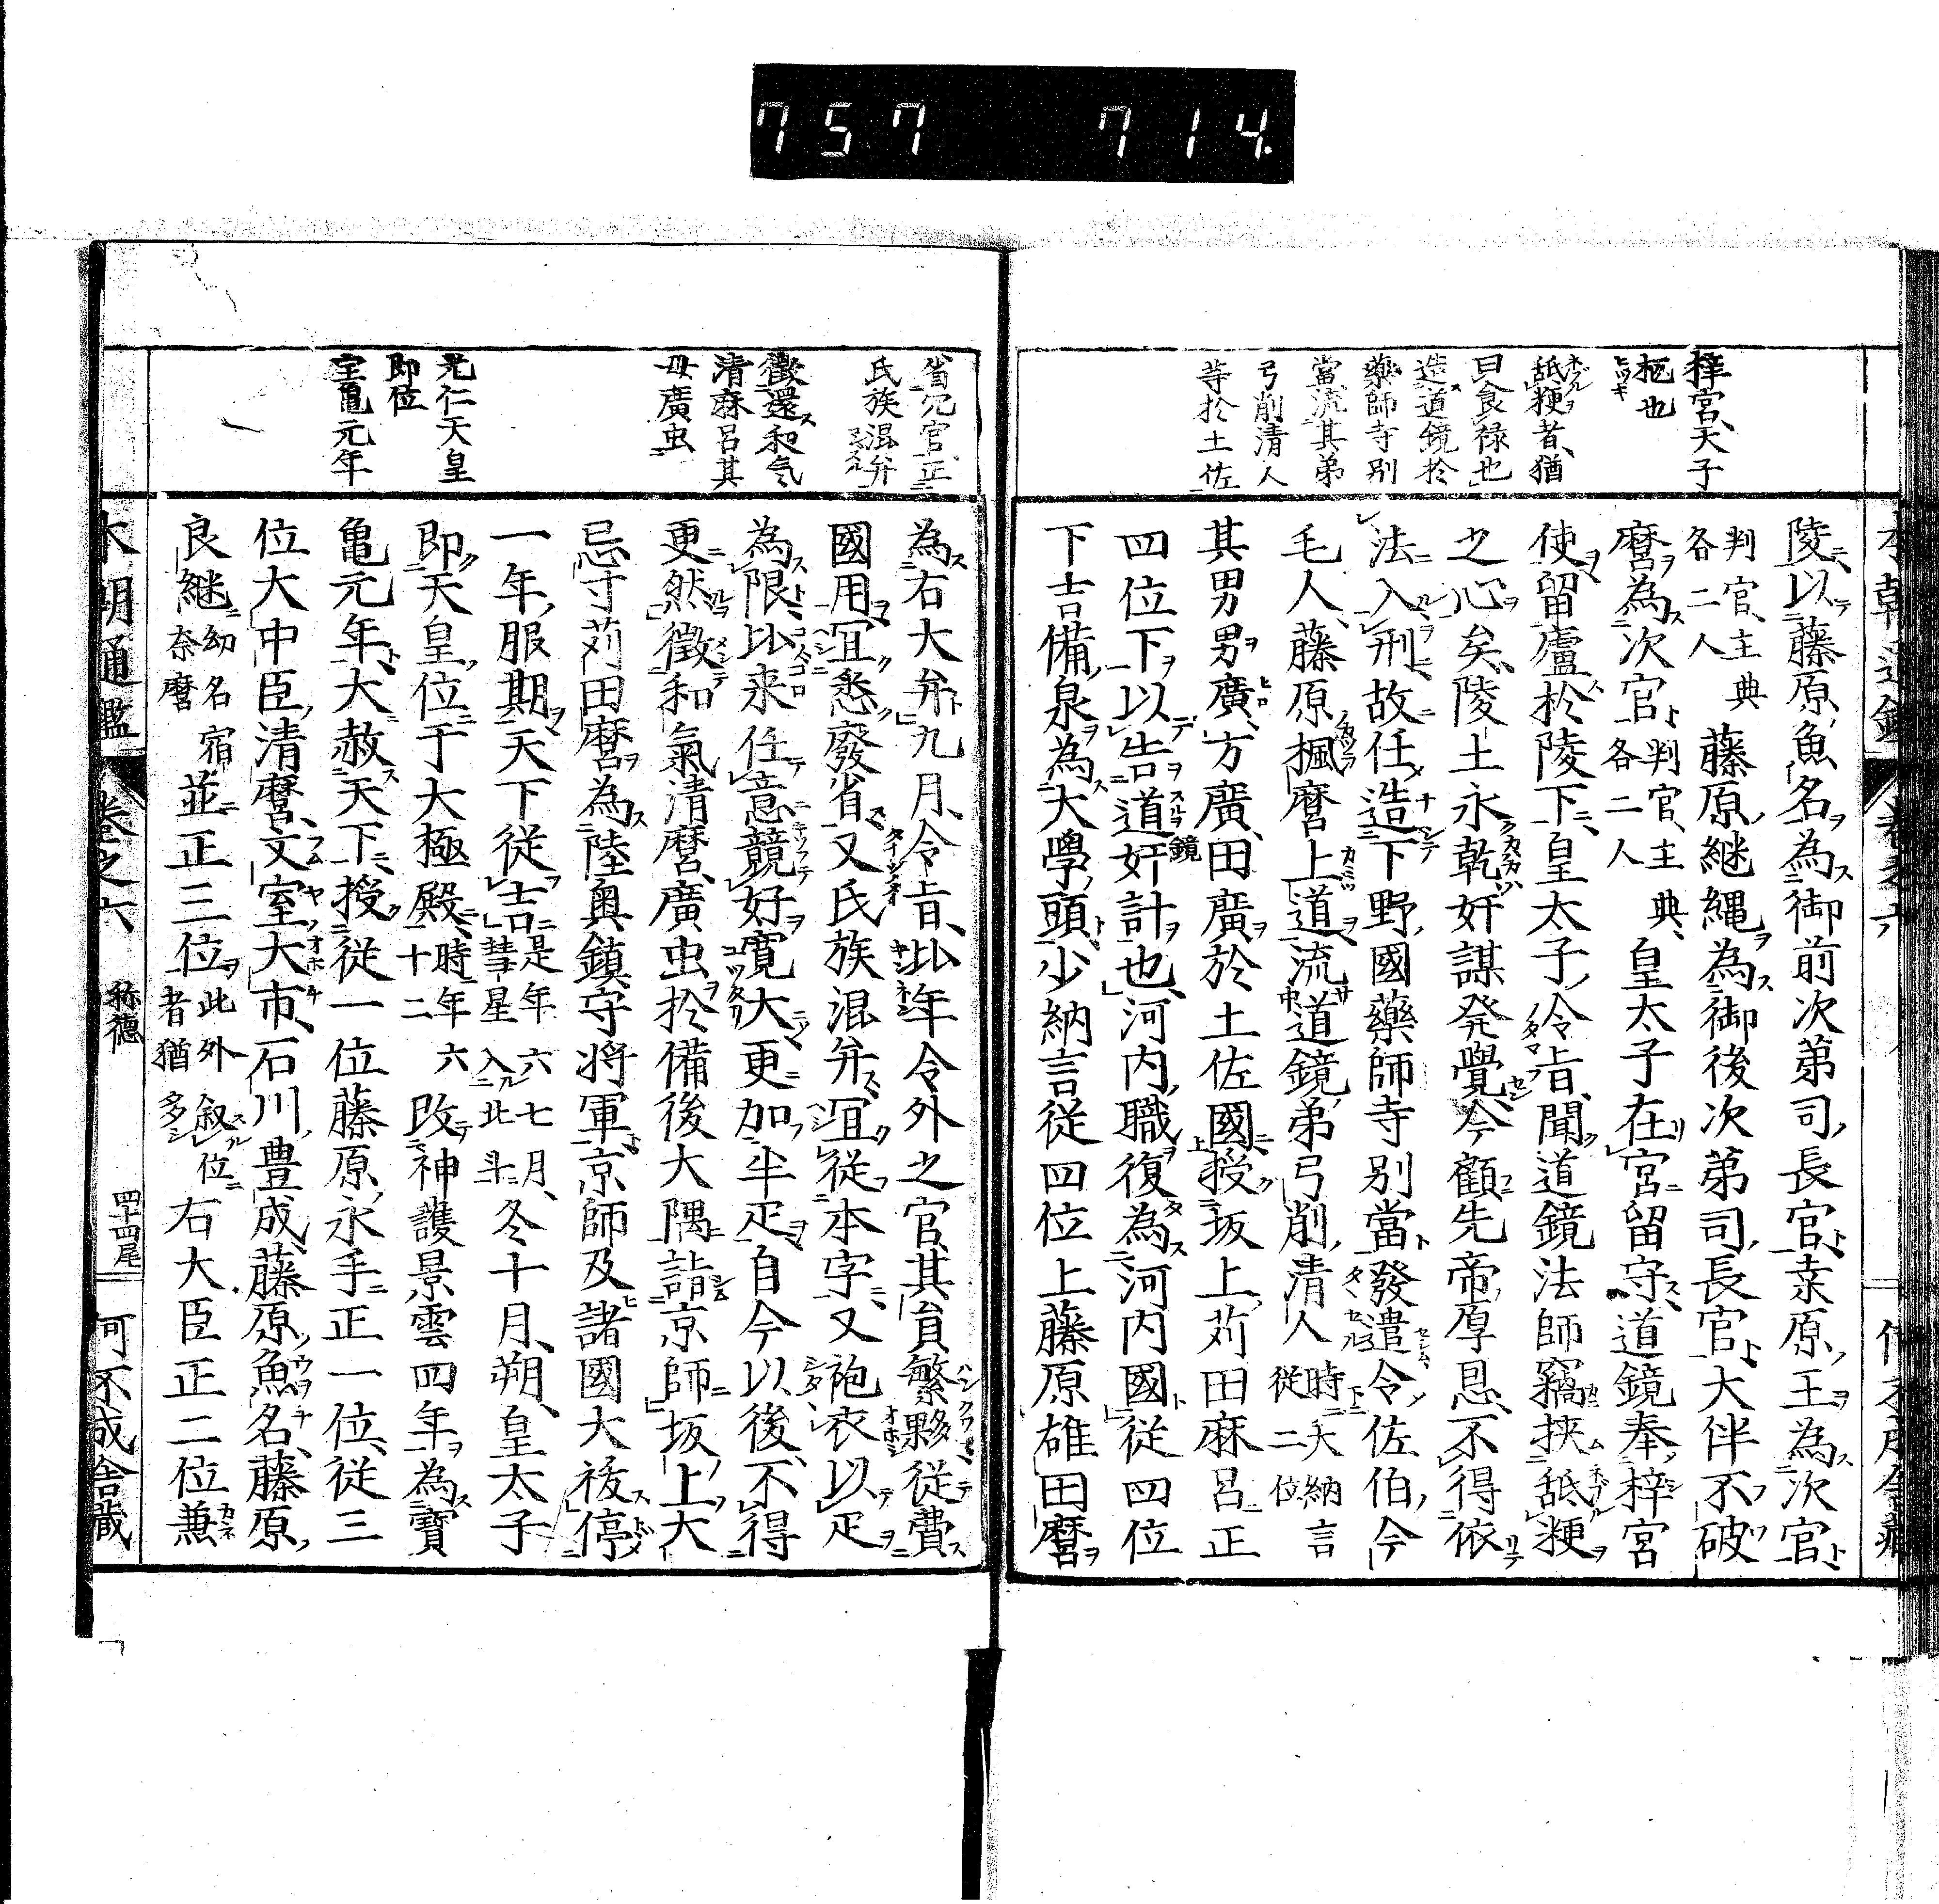 757 714.
梓宮天子
柩也
舐粳者、猶
曰食禄也
造道鏡於
藥師寺別
當流其弟
弓削清人
等於土佐
陵以藤原魚名為御前次第司長官、桒原王為次官
判官、主典各二人藤原継縄為御後次第司長官、大伴不破
麿為次官、判官、主典、各二人皇太子在宮留守、道鏡奉梓宮
使留廬於陵下、皇太子令旨、聞道鏡法師竊挾舐粳
之心矣、陵土永乾奸謀発覺、今顧先帝厚恩、不得依
法入刑、故任造下野國藥師寺別當發遣、令佐伯今
毛人、藤原楓麿上道、流道鏡弟弓削清人時大納言従二位
其男男廣、方廣、田廣於土佐國、授坂上苅田麻呂正
四位下、以告道鏡奸計也、河内職復為河内國従四位
下吉備泉為大學頭、少納言従四位上藤原雄田麿
為右大弁、九月、令旨、比年令外之官、其員繁夥、従費
國用、冝悉廢省、又氏族混弁、冝従本字、又袍衣以疋
為限、比来任意、競好寛大更加半疋、自今以後、不得
更然、徴和氣清麿、廣虫於備後大隅詣京師、坂上大
忌寸苅田麿為陸奥鎮守将軍、京師及諸國大祓停
一年服期、天下従吉是年六七月、彗星入北斗冬十月、朔、皇太子
即天皇位于大極殿、時年六十二改神護景雲四年為寶
亀元年、大赦天下、授従一位藤原永手正一位、従三
位大中臣清麿、文室大市、石川豊成、藤原魚名、藤原
良継幼名宿奈麿並正三位此外叙位者猶多右大臣正二位兼
省冗官正
氏族混弁
徴還和気
清麻呂其
母廣虫
光仁天皇
即位
宝亀元年
本朝通鑑 巻之六 称徳 四十四尾 何不成舎蔵